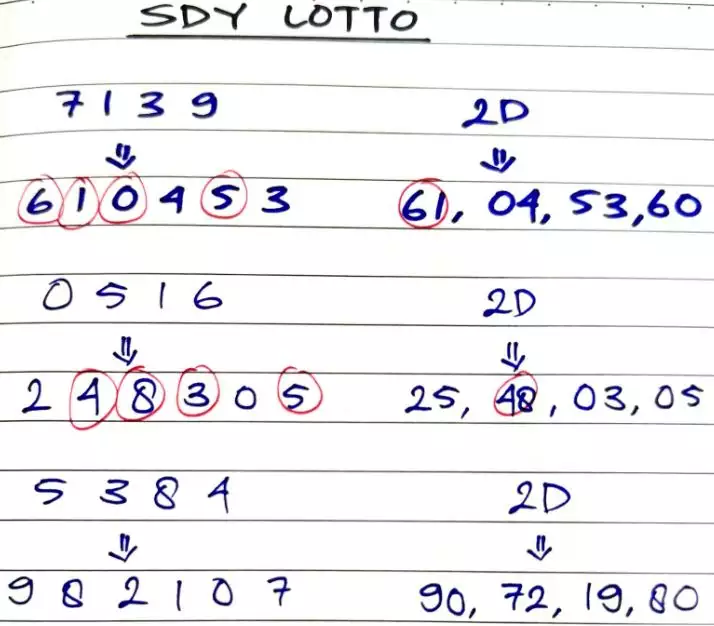 SDY LOTTO
7 1 3 9 2D
⇓ ⇓
6 1 0 4 5 3 61, 04, 53, 60
0 5 1 6 2D
⇓ ⇓
2 4 8 3 0 5 25, 48, 03, 05
5 3 8 4 2D
⇓ ⇓
9 8 2 1 0 7 90, 72, 19, 80